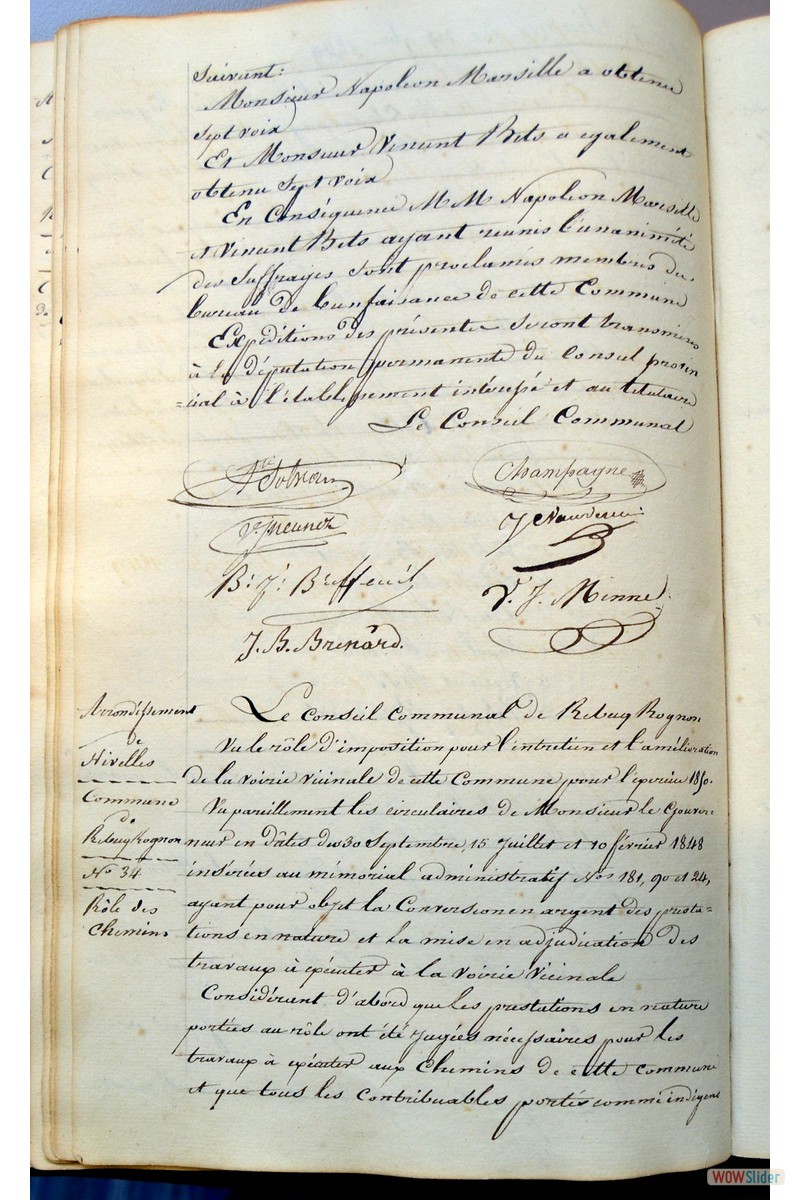 Suivant:
Monsieur Napoleon Marsille a obtenu
Sept voix
Et Monsieur Vincent Bets a egalement
obtenu Sept voix
En Conséquence M M Napoleon Marsille
et Vincent Bets ayant reunis l'unanimité
des Suffrages sont proclamés membres du
bureau de bienfaisance de cette Commune
Expéditions des présentes seront transmises
à la députation permanente du Conseil provin
=cial à l'établissement intéressé et au titulaire
Le Conseil Communal
Champagne
B. J. Breffeuil
V. J. Minne
J. B. Brenard.
Arrondissement
de
Nivelles
Commune
de
Rebecq Rognon
No 34
Rôle des
Chemins
Le Conseil Communal de Rebecq Rognon
Vu le rôle d'imposition pour l'entretien et l'amélioration
de la voirie vicinale de cette Commune pour l'éxercice 1850.
Vu pareillement les circulaires de Monsieur le Gouver=
neur en dâtes des 30 Septembre, 15 Juillet et 10 février 1848
insérées au mémorial administratif Nos 181, 90 et 24,
ayant pour objet la Conversion en argent des presta=
tions en nature et la mise en adjudication des
travaux à exécuter à la voirie vicinale
Considérant d'abord que les prestations en nature
portées au rôle ont été jugées nécessaires pour les
travaux à exécuter aux Chemins de cette commune
et que tous les Contribuables portés comme indigens
WOWSlider